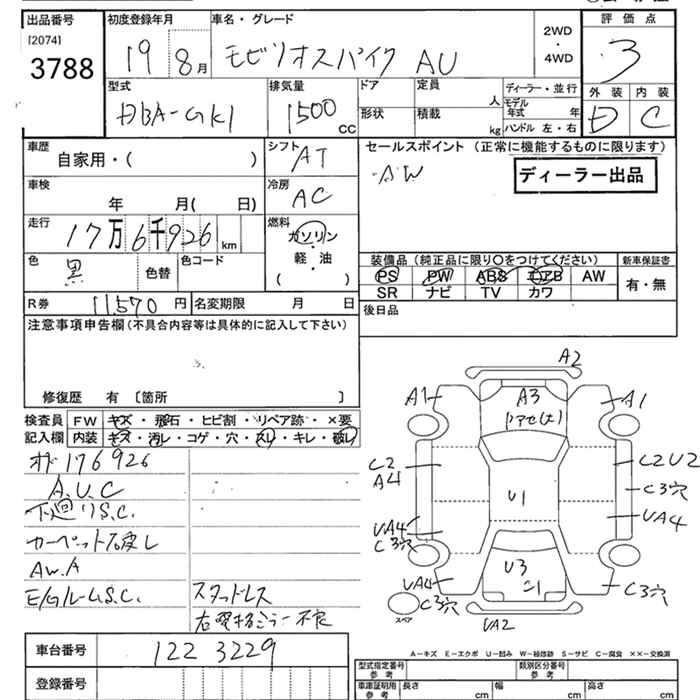 出品番号 初度登録年月 車名・グレード 2WD ・ 4WD 評価点
[2074]
3788 19 8月 モビリオスパイク AU 3
型式 排気量 ドア 定員 人 ディーラー・並行 外装 内装
DBA-GK1 1500 CC 形状 積載 kg モデル年式 年 D C
ハンドル 左・右
車歴 シフト セールスポイント (正常に機能するものに限ります)
自家用・( ) AT AW ディーラー出品
車検 冷房
年 月( 日) AC
走行 燃料
17万6千926 km ガソリン
・
軽・油
( )
色 黒 色替 色コード
装備品 (純正品に限り○をつけてください) 新車保証書
PS PW ABS エアB AW 有・無
SR ナビ TV カワ
R券 11,570 円 名変期限 月 日 後日品
注意事項申告欄 (不具合内容等は具体的に記入して下さい)
修復歴 有 〔箇所 〕
検査員 FW キズ・飛石・ヒビ割・リペア跡・×要
記入欄 内装 キズ・汚レ・コゲ・穴・スレ・キレ・破レ
オド176926
A.U.C
下廻りS.C.
カーペット破レ
AW.A
E/GルームS.C. スタッドレス
A2
A1 A3 A1
C2 A4 C2U2
C3穴
U1
UA4 UA4
C3穴
U3
UA4 C3穴
C3穴
スペア UA2
車台番号 122 3229
登録番号
A-キズ E-エクボ U-凹み W-補修跡 S-サビ C-腐食 ××-交換済
型式指定番号 参考 類別区分番号 参考
車庫証明用 参考 長さ cm 幅 cm 高さ cm